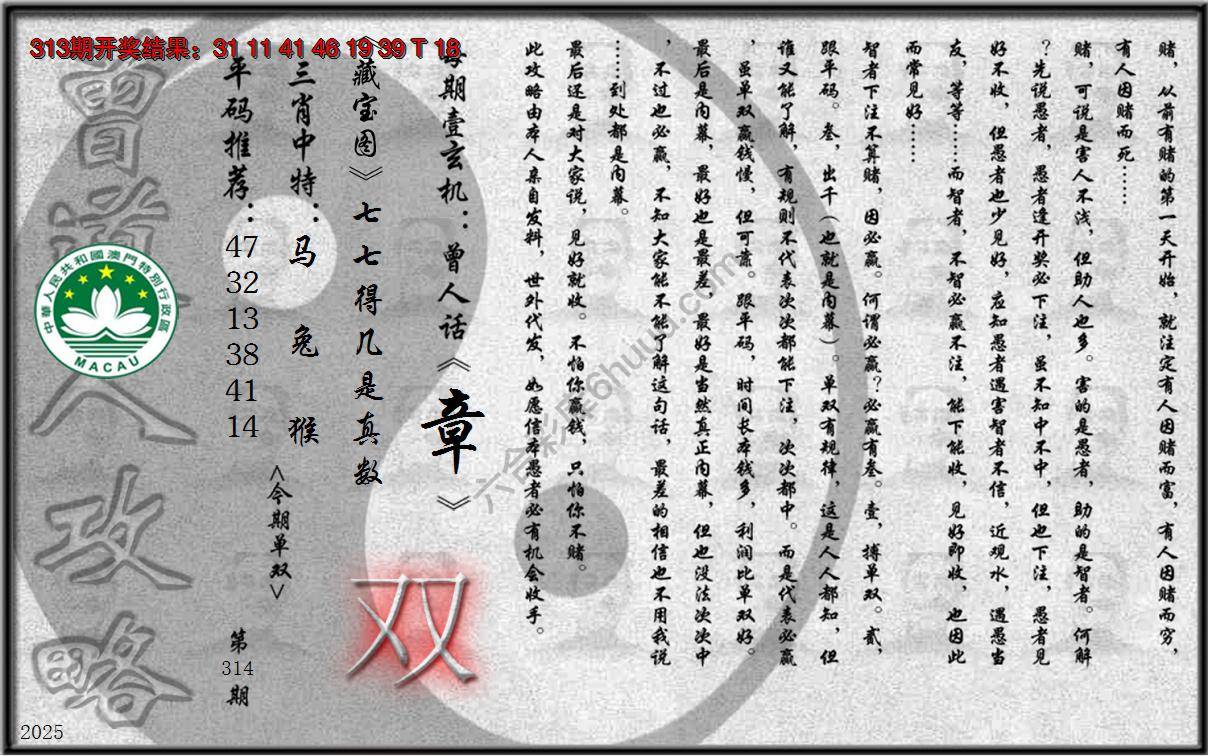 313期开奖结果：31 11 41 46 19 39 T 18
赌，从前有赌的第一天开始，就注定有人因赌而富，有人因赌而穷，
有人因赌而死……
赌，可说是害人不浅，但助人也多。害的是愚者，助的是智者。何解
？先说愚者，愚者逢开奖必下注，虽不知中不中，但也下注，愚者见
好不收，但愚者也少见好，应知愚者遇害智者不信，近观水，遇愚当
友，等等……而智者，不智必赢不注，能下能收，见好即收，也因此
而常见好……
智者下注不算赌，因必赢。何谓必赢？必赢有叁。壹，搏单双。贰，
跟平码。叁，出千（也就是内幕）。单双有规律，这是人人都知，但
谁又能了解，有规则不代表次次都能下注，次次都中。而是代表必赢
，虽单双赢钱慢，但可靠。跟平码，时间长本钱多，利润比单双好。
最后是内幕，最好也是最差，最好是当然真正内幕，但也没法次次中
，不过也必赢，不知大家能不能了解这句话，最差的相信也不用我说
……到处都是内幕。
最后还是对大家说，见好就收。不怕你赢钱，只怕你不赌。
此攻略由本人亲自发料，世外代发，如愿信本愚者必有机会收手。
每期壹玄机：曾人话《章》
《藏宝图》七七得几是真数
三肖中特：马 兔 猴
平码推荐：
47
32
13
38
41
14
<今期单双>
双
第
314
期
曾道人攻略
中華人民共和國澳門特別行政區
MACAU
六合彩库6huuu.com
2025